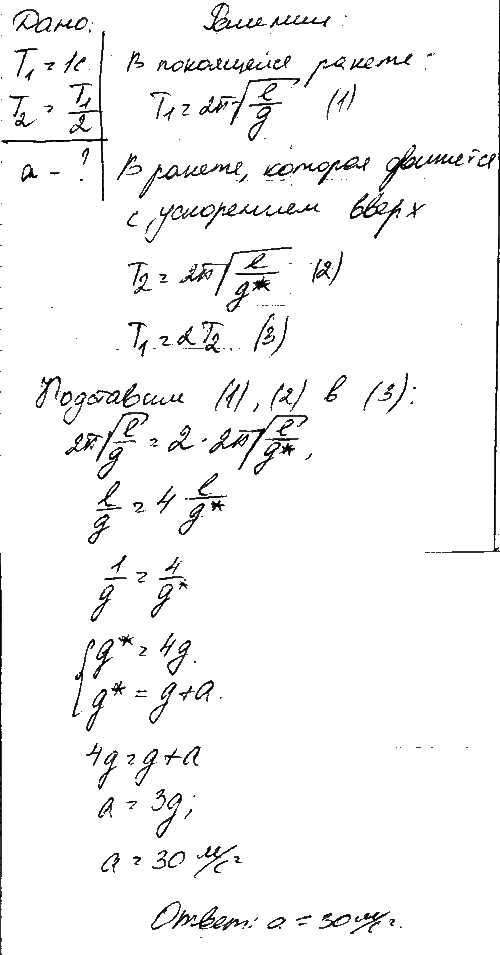 Дано: Решение:
T₁ = 1с
T₂ = T₁/2
a - ?
В покоящейся ракете:
T₁ = 2π√(l/g) (1)
В ракете, которая движется
с ускорением вверх
T₂ = 2π√(l/g*) (2)
T₁ = 2T₂ (3)
Подставим (1), (2) в (3):
2π√(l/g) = 2 · 2π√(l/g*),
l/g = 4 l/g*
1/g = 4/g*
{ g* = 4g.
g* = g + a.
4g = g + a
a = 3g;
a = 30 м/с²
Ответ: a = 30 м/с².